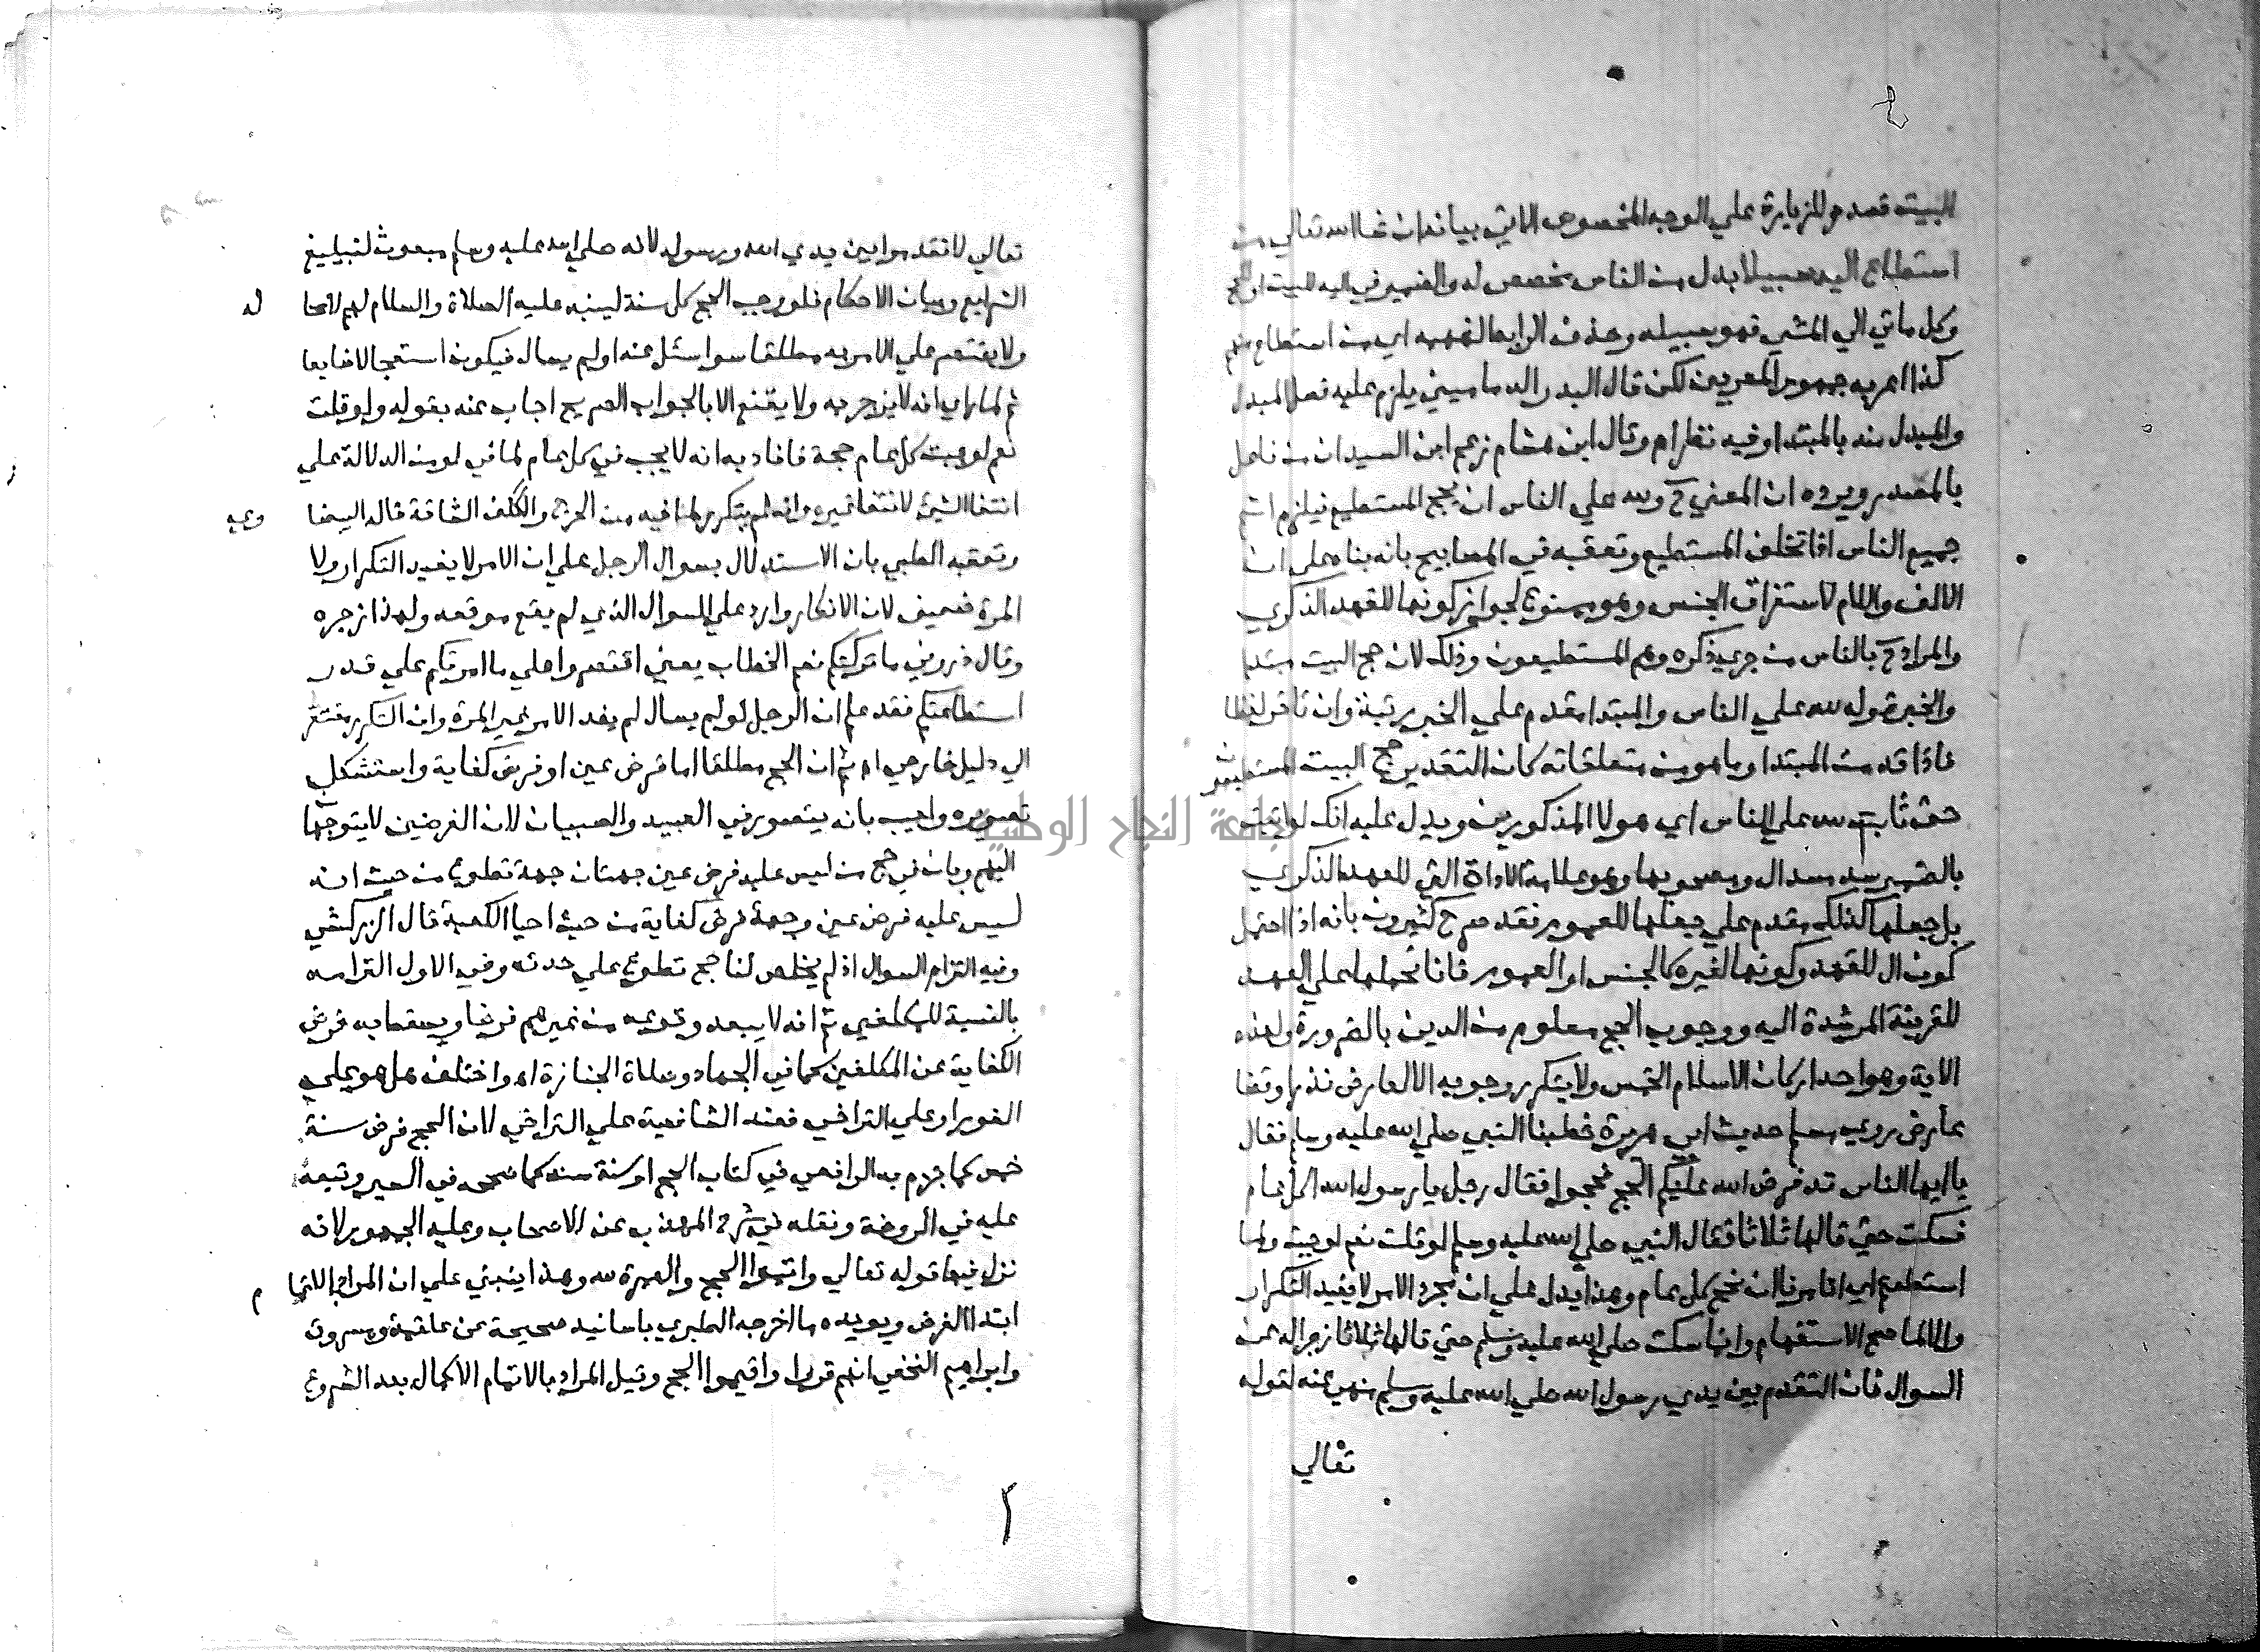 البيت قصده للزيارة علي الوجه المخصوص الاتي بيانه ان شا الله تعالي من
استطاع اليه سبيلا بدل من الناس مخصص له والضمير في اليه للبيت او الحج
وكل ماتي الي الشي فهو سبيله وحذف الرابط لفهمه اي من استطاع منهم
كذا اعربه جمهور المعربين لكن قال البدر الدماميني يلزم عليه فصل المبدل
والمبدل منه بالمبتدا وفيه نظر اه وقال ابن هشام زعم ابن السيد ان من فاعل
بالمصدر ويرده ان المعني ح ولله علي الناس ان يحج المستطيع فيلزم اثم
جميع الناس اذا تخلف المستطيع وتعقبه في المصابيح بانه بناه علي ان
الالف واللام لاستغراق الجنس وهو ممنوع لجواز كونها للعهد الذكري
والمراد ح بالناس من جري ذكره وهم المستطيعون وذلك لان حج البيت مبتدا
والخبر قوله لله علي الناس والمبتدا مقدم علي الخبر رتبة وان تاخر لفظا
فاذا قدمت المبتدا وما هو من متعلقاته كان التقدير حج البيت المستطيعون
حق ثابت لله علي الناس اي هولا المذكورين ويدل عليه انك لو اتيت
بالضمير سد مسد ال ومصحوبها وهو علامة الاداة التي للعهد الذكري
بل جعلها كذلك مقدم علي جعلها للعموم فقد صرح كثيرون بانه اذا احتمل
كون ال للعهد وكونها لغيره كالجنس او العموم فانا نحملها علي العهد
للقرينة المرشدة اليه ووجوب الحج معلوم من الدين بالضرورة ولهذه
الاية وهو احد اركان الاسلام الخمس ولا يتكرر وجوبه الا لعارض نذر او قضا
عارض روي مسلم حديث ابي هريرة خطبنا النبي صلي الله عليه وسلم فقال
يا ايها الناس قد فرض الله عليكم الحج فحجوا فقال رجل يا رسول الله اكل عام
فسكت حتي قالها ثلاثا فقال النبي صلي الله عليه وسلم لو قلت نعم لوجبت ولما
استطعتم اي اتامرنا ان نحج كل عام وهذا يدل علي ان مجرد الامر لا يفيد التكرار
والا لما صح الاستفهام وانما سكت صلي الله عليه وسلم حتي قالها ثلاثا زجرا له عن
السوال فان التقدم بين يدي رسول الله صلي الله عليه وسلم منهي عنه لقوله
تعالي
تعالي لا تقدموا بين يدي الله ورسوله لانه صلي الله عليه وسلم مبعوث لتبليغ
الشرايع وبيان الاحكام فلو وجب الحج كل سنة لبينه عليه الصلاة والسلام لهم لا محا
له
ولا يقتصر علي الامر به مطلقا سوا سئل عنه او لم يسال فيكون استعجالا ضايعا
ثم لما راي انه لاينزجر به ولا يقنع الا بالجواب الصريح اجاب عنه بقوله ولو قلت
نعم لوجبت كل عام حجة فافاد به انه لا يجب في كل عام لما في لو من الدلالة علي
انتفا الشي لانتفا غيره وانه لم يتكرر لما فيه من الحرج والكلف الشاقة قاله البيضا
وي
وتعقبه الطيبي بان الاستدلال بسوال الرجل علي ان الامر لا يفيد التكرار ولا
المرة ضعيف لان الانكار وارد علي السوال الذي لم يقع موقعه ولهذا زجره
وقال ذروني ما تركتكم نعم الخطاب يعني اقتصروا علي ما امرتكم علي قدر
استطاعتكم فقد علم ان الرجل لو لم يسال لم يفد الامر غير المرة وان التكرر مفتقر
الي دليل خارجي اه ثم ان الحج مطلقا اما فرض عين او فرض كفاية واستشكل
تصويره واجيب بانه يتصور في العبيد والصبيان لان الفرضين لا يتوجها
اليهم وبان في حج من ليس عليه فرض عين جهتان جهة تطوع من حيث انه
ليس عليه فرض عين وجهة فرض كفاية من حيث احيا الكعبة قال الزركشي
وفيه التزام السوال اذ لم يخلص لنا حج تطوع علي حدته وفي الاول التزامه
بالنسبة للمكلفين ثم انه لا يبعد وقوعه من غيرهم فرضا ويسقط به فرض
الكفاية عن المكلفين كما في الجهاد وصلاة الجنازة اه واختلف هل هو علي
الفور او علي التراخي فعند الشافعية علي التراخي لان الحج فرض سنة
خمس كما جزم به الرافعي في كتاب الحج او سنة ست كما صححه في السير وتبعه
عليه في الروضة ونقله في شرح المهذب عن الاصحاب وعليه الجمهور لانه
نزل فيها قوله تعالي واتموا الحج والعمرة لله وهذا ينبني علي ان المراد بالاتما
م
ابتدا الفرض ويويده ما اخرجه الطبري باسانيد صحيحة عن علقمة ومسروق
وابراهيم النخعي انهم قروا واقيموا الحج وقيل المراد بالاتمام الاكمال بعد الشروع
جامعة النجاح الوطنية